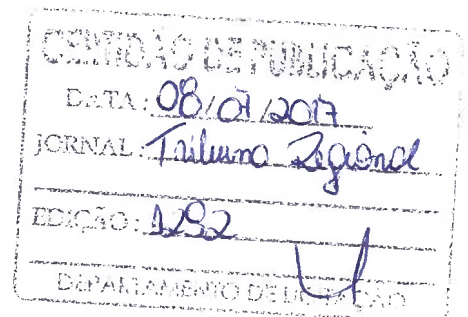 CERTIDÃO DE PUBLICAÇÃO
DATA: 08/07/2017
JORNAL: Tribuna Regional
EDIÇÃO: 1292
DEPARTAMENTO DE LICITAÇÃO